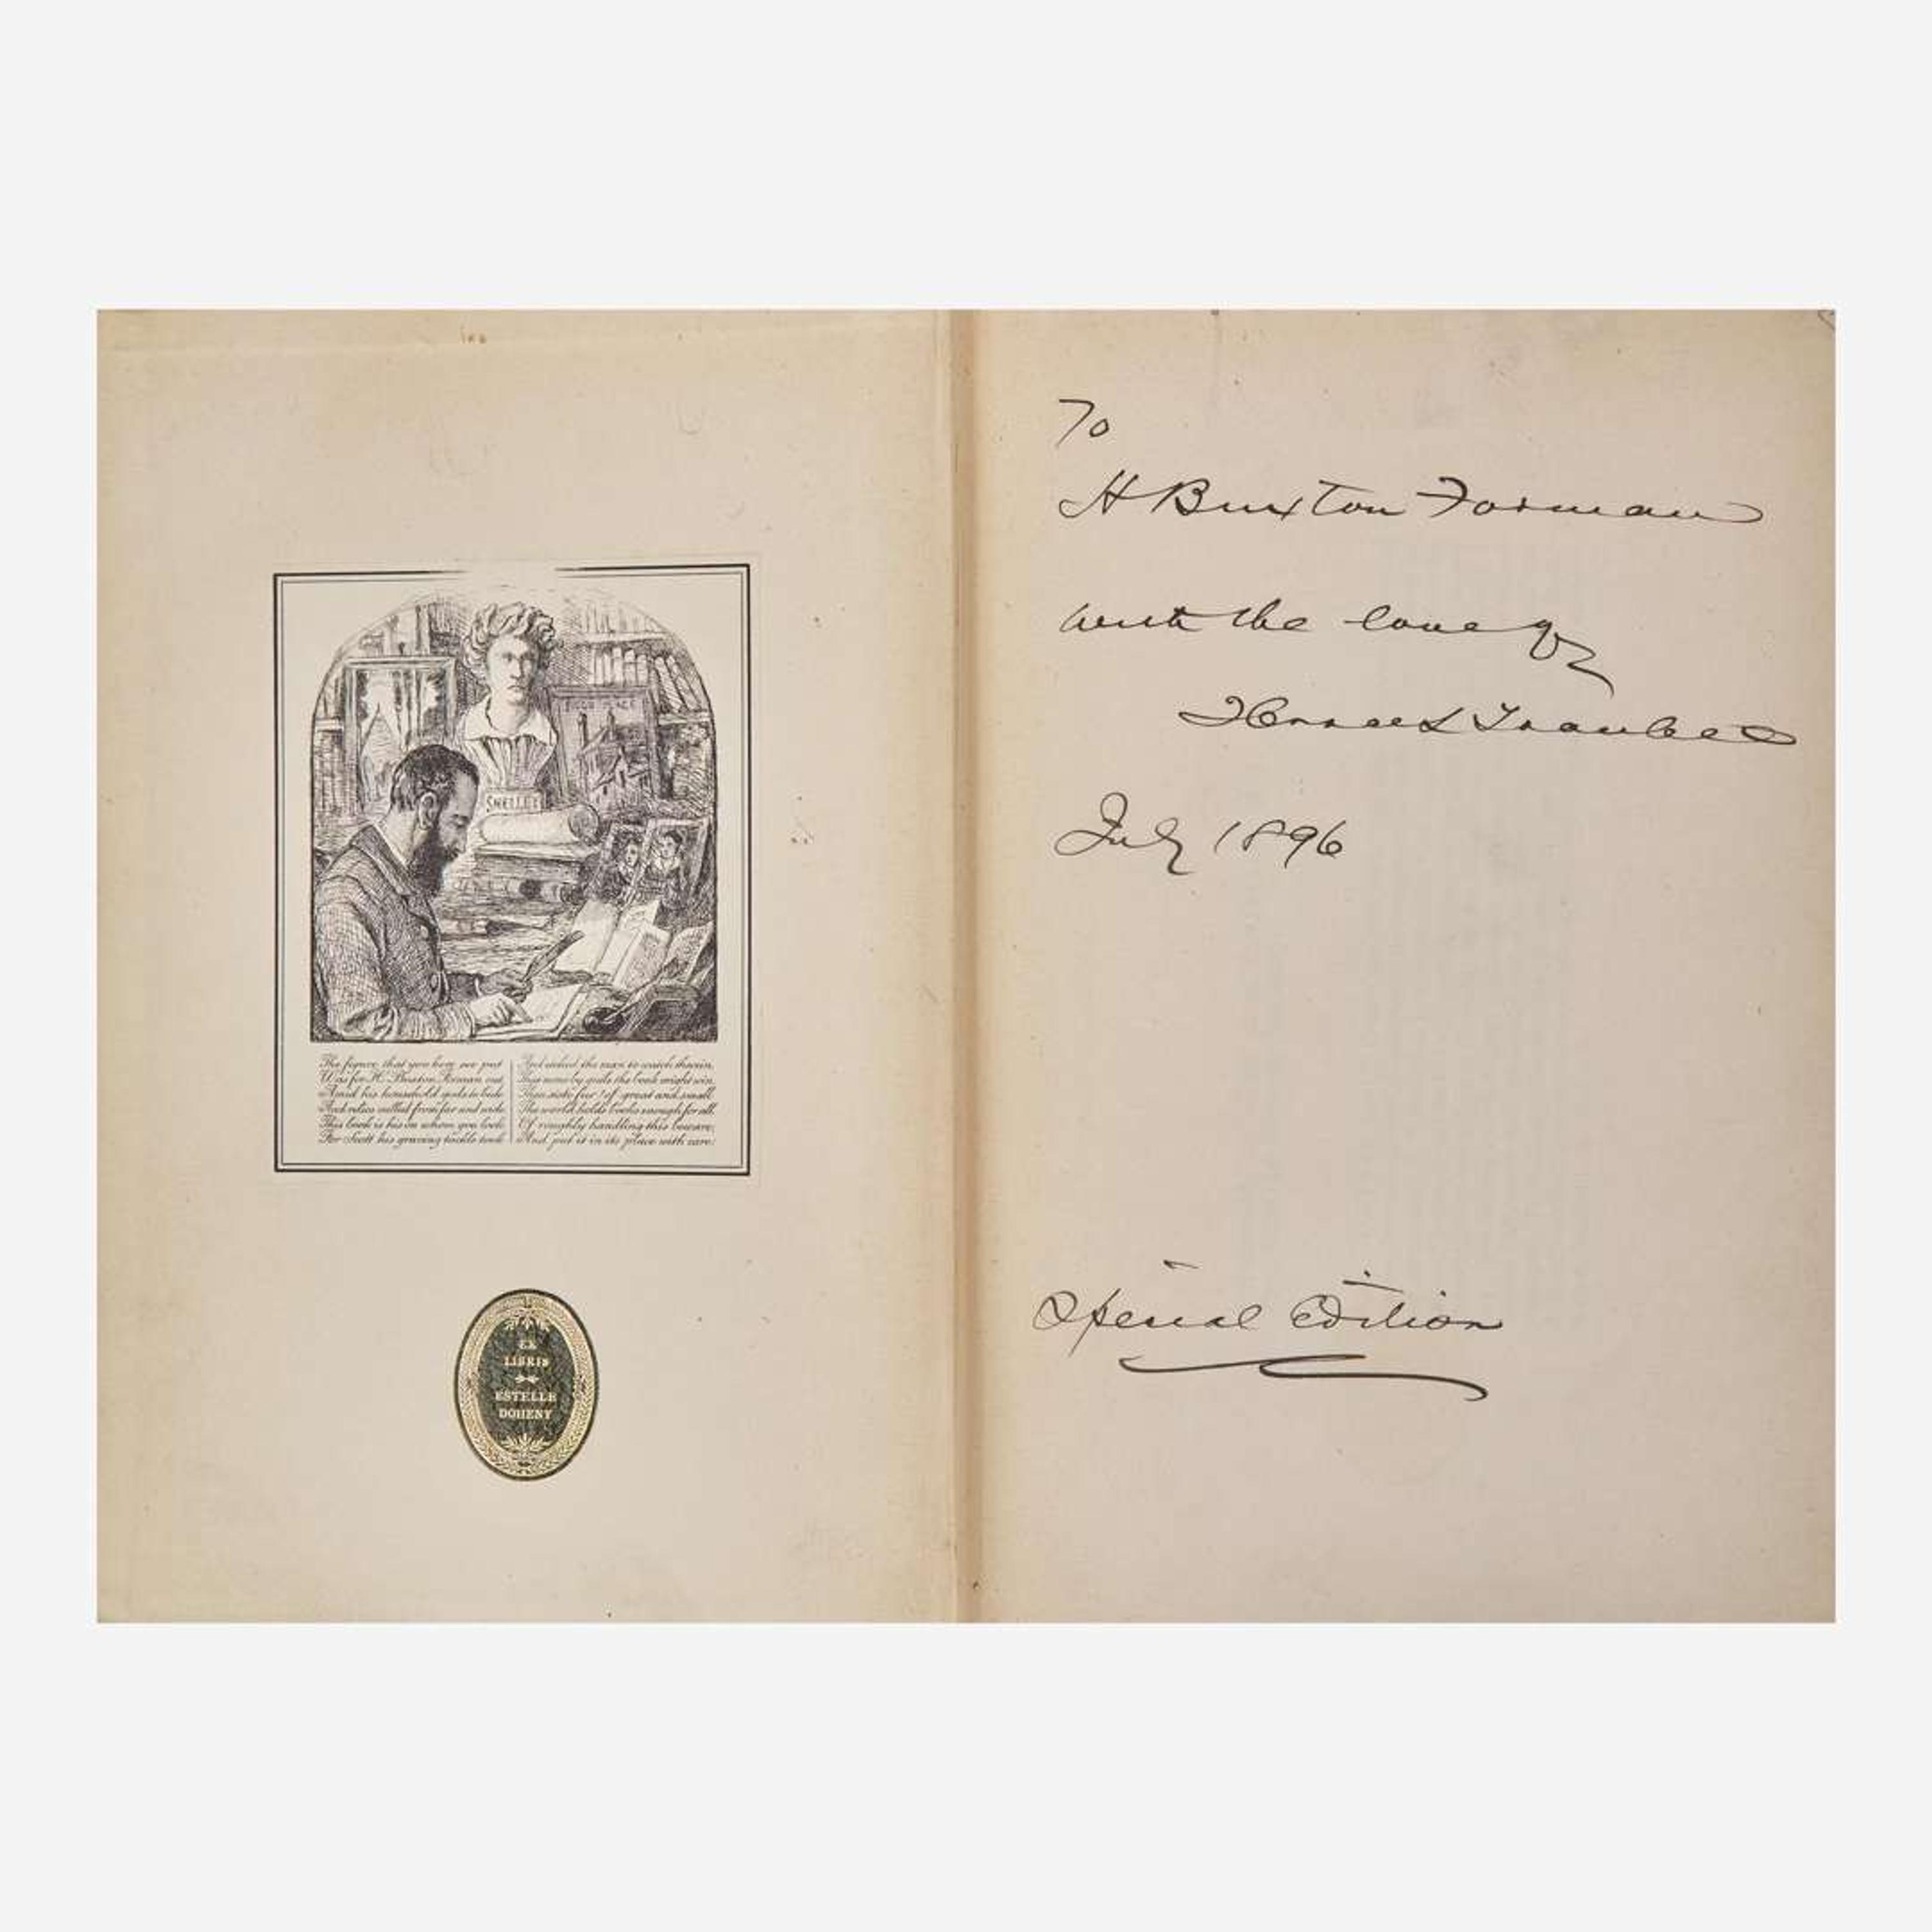 SHELLEY
The figure, that you here see put
Was for H. Buxton Forman cut
Amid his household gods to bide
And relics culled from far and wide
This book is his on whom you look:
For Scott his graving tackle took
And asked the man to watch therein,
This now by gods the book might win.
of great and small
The world holds books enough for all.
Of roughly handling this beware,
And put it in its place with care.
EX
LIBRIS
ESTELLE
DOHENY
To
H Buxton Forman
with the love of
Horace L Traubel
July 1896
Special Edition